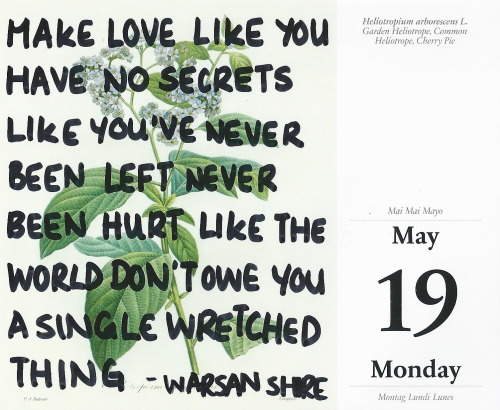 MAKE LOVE LIKE YOU
HAVE NO SECRETS
LIKE YOU'VE NEVER
BEEN LEFT NEVER
BEEN HURT LIKE THE
WORLD DON'T OWE YOU
A SINGLE WRETCHED
THING - WARSAN SHIRE
Heliotropium arborescens L.
Garden Heliotrope, Common
Heliotrope, Cherry Pie
Mai Mai Mayo
May
19
Monday
Montag Lundi Lunes